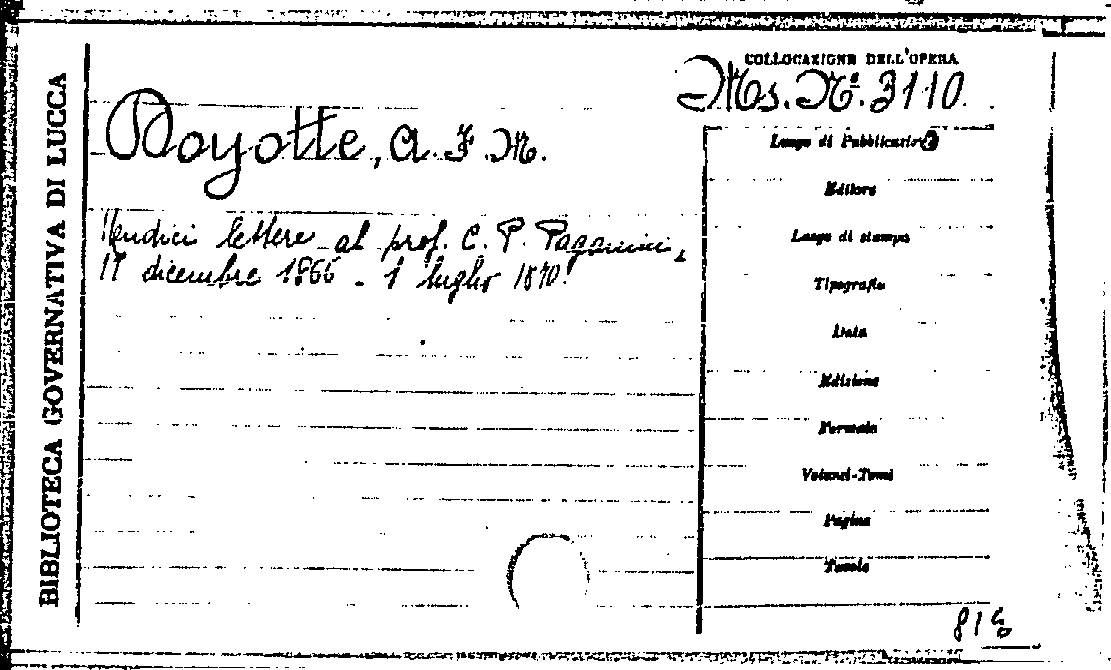 BIBLIOTECA GOVERNATIVA DI LUCCA
COLLOCAZIONE DELL'OPERA
Ms. Nº. 3110.
Doyotte, A. F. M.
Undici lettere al prof. C. P. Paganini,
17 dicembre 1866 - 1 luglio 1870.
Luogo di Pubblicazione
Editore
Luogo di stampa
Tipografia
Data
Edizione
Formato
Volumi-Tomi
Pagine
Tavole